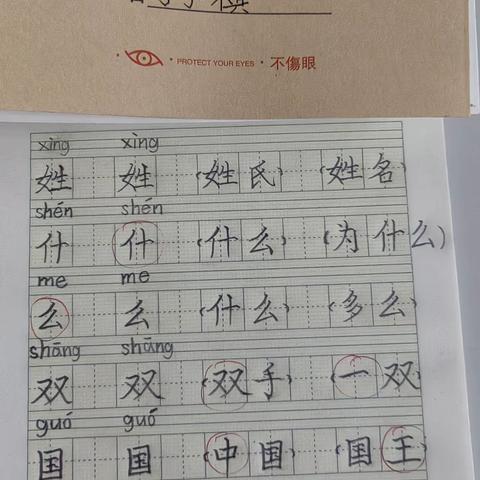 PROTECT YOUR EYES · 不傷眼
xìng xìng
姓 姓 (姓氏) (姓名)
shén shén
什 什 (什么) (为什么)
me me
么 么 (什么) (多么)
shāng shuāng
双 双 (双手) (一双)
guó guó
国 国 (中国) (国王)